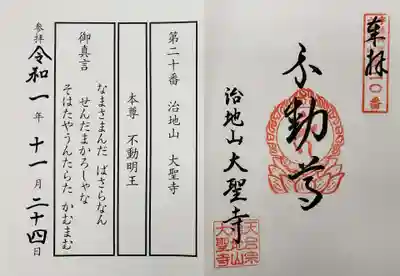 奉拝
〇番
不動尊
治地山大聖寺
第二十番 治地山 大聖寺
本尊 不動明王
御真言
なまさまんだ ばさらなん
せんだまかろしゃな
そはたやうんたらた かむまむ
参拝 令和一年十一月二十四日